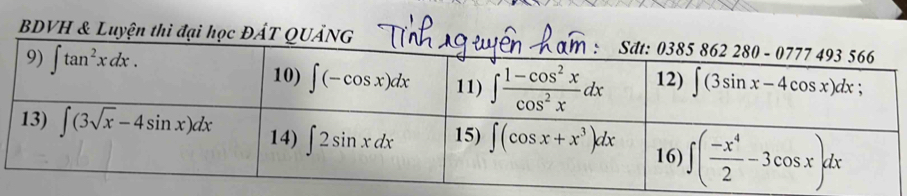 BDVH & Luyện thi đại học ĐẤT QUẢNG Tính nguyên hàm : Sđt: 0385 862 280 - 0777 493 566
9) ∫ tan² x dx . 10) ∫ (−cos x)dx 11) ∫ (1 − cos² x)/(cos² x) dx 12) ∫ (3sin x − 4cos x)dx ;
13) ∫ (3√x − 4sin x)dx 14) ∫ 2sin x dx 15) ∫ (cos x + x³)dx 16) ∫ (−x⁴/2 − 3cos x)dx